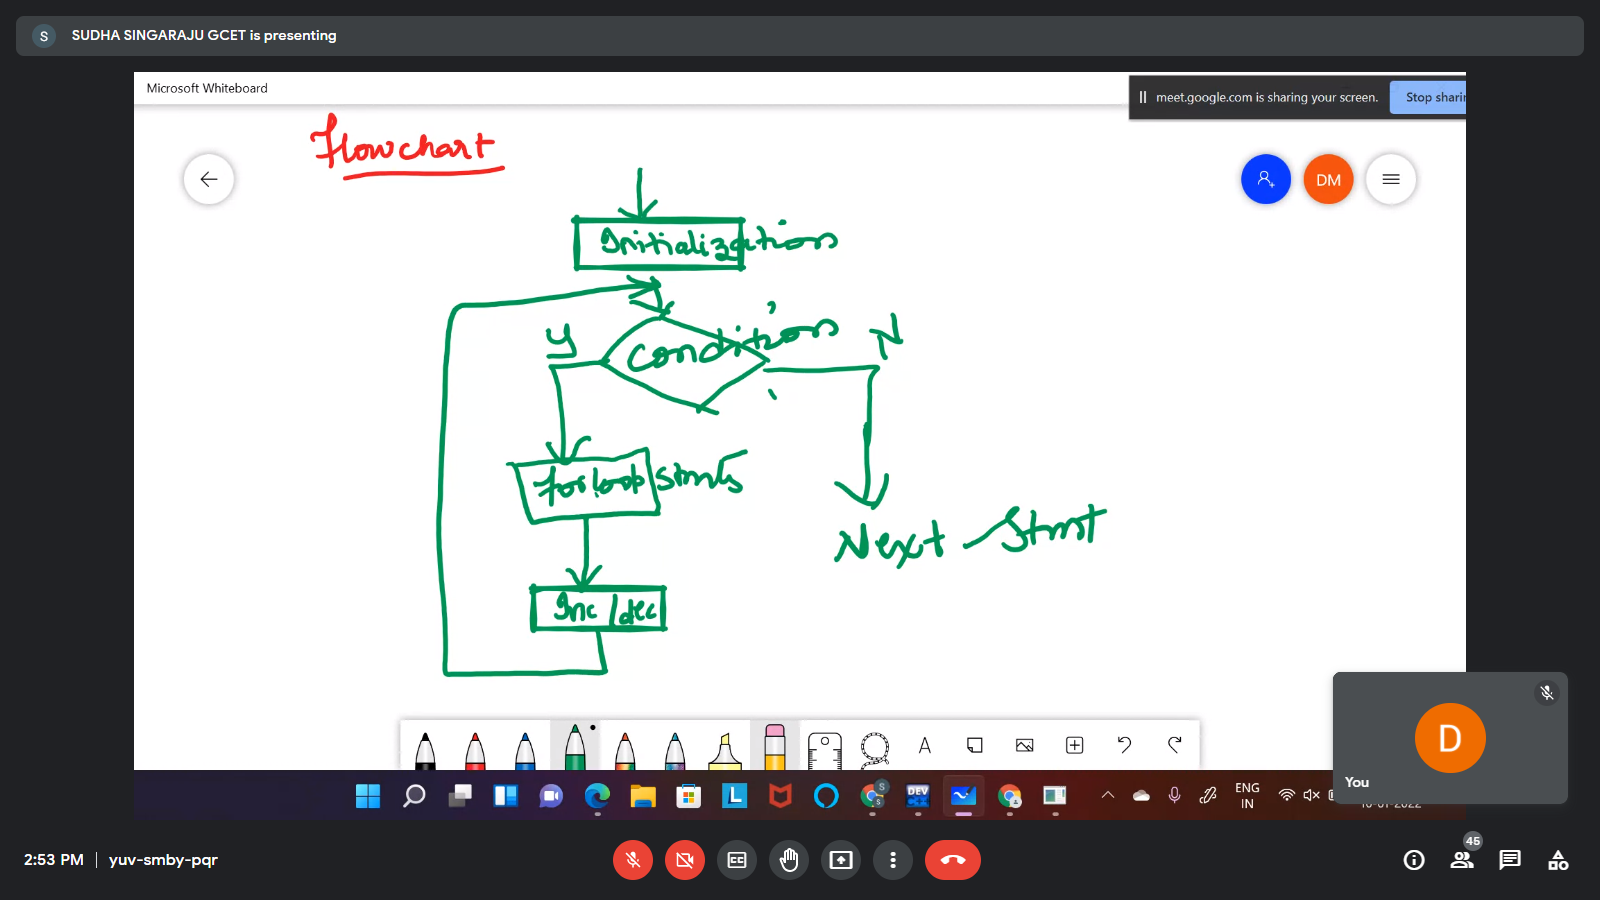 S SUDHA SINGARAJU GCET is presenting
Microsoft Whiteboard
meet.google.com is sharing your screen.
Stop sharin
Flowchart
DM
Initialization
Y
condition
N
for loop stmts
Next Stmt
Inc/dec
A
D
You
L
DEV
ENG
IN
2:53 PM | yuv-smby-pqr
CC
45